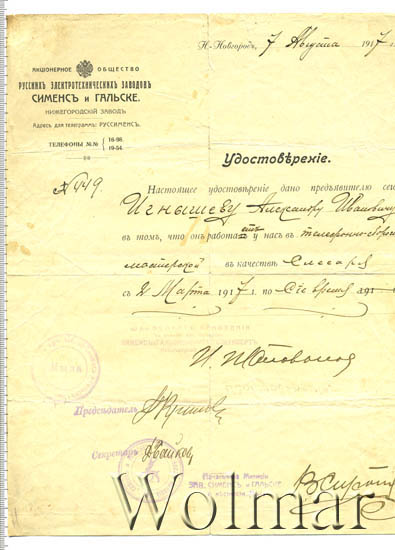 Н-Новгородъ, 7 Августа 1917 г.
АКЦІОНЕРНОЕ ОБЩЕСТВО
РУССКИХЪ ЭЛЕКТРОТЕХНИЧЕСКИХЪ ЗАВОДОВЪ
СИМЕНСЪ и ГАЛЬСКЕ.
НИЖЕГОРОДСКІЙ ЗАВОДЪ.
Адресъ для телеграммъ: РУССИМЕНСЪ.
ТЕЛЕФОНЫ №№ 16-98. 19-54.
Удостовѣреніе.
№ 449.
Настоящее удостовѣреніе дано предъявителю сего
Игнышеву Александру Ивановичу
въ томъ, что онъ работаетъ у насъ въ телефонно-сборо
мастерской въ качествѣ Слесаря
съ 2 Марта 1917 г. по сіе время 191
Предсѣдатель
Секретарь
ЗАВ. СИМЕНСЪ и ГАЛЬСКЕ
Wolmar